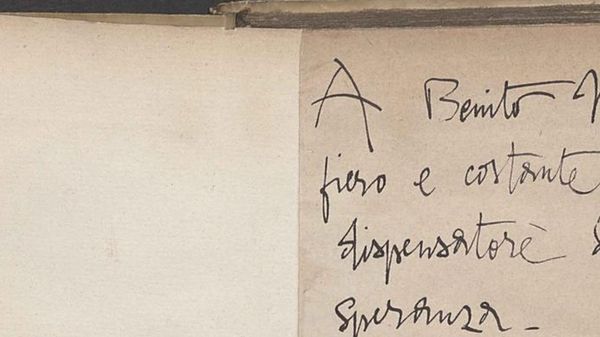 A Benito
fiero e costante
dispensatore
speranza -